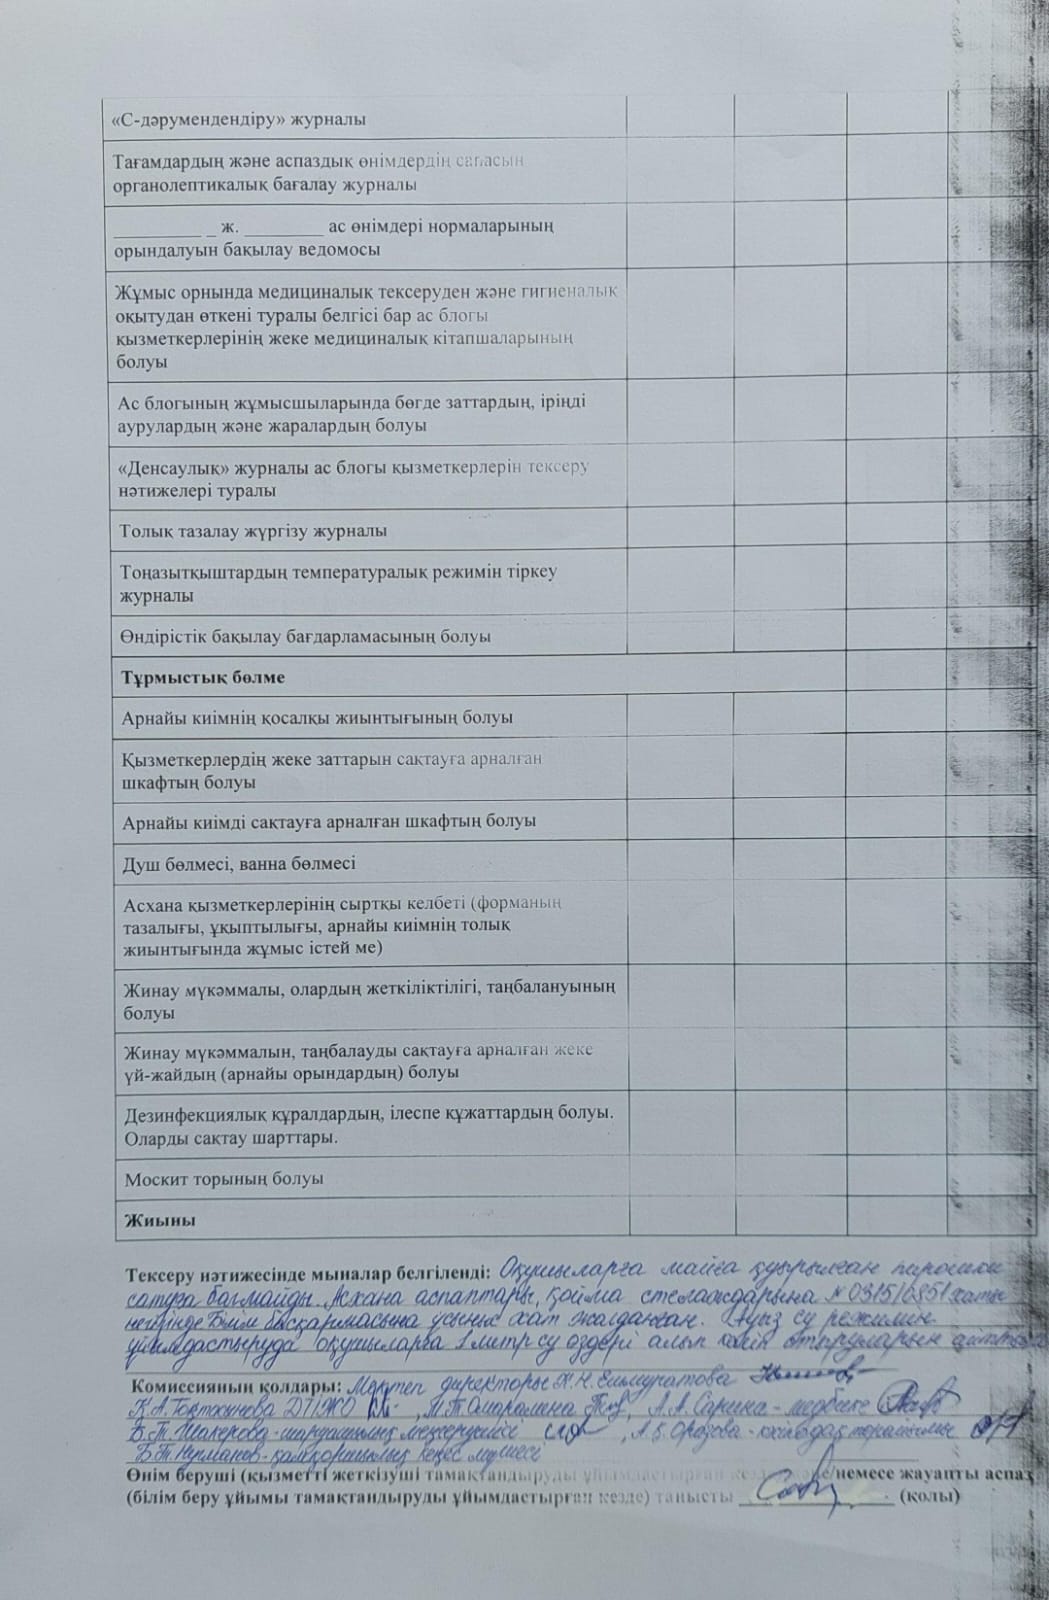 «С-дәрумендендіру» журналы
Тағамдардың және аспаздық өнімдердің сапасын
органолептикалық бағалау журналы
_________ _ ж. ________ ас өнімдері нормаларының
орындалуын бақылау ведомосы
Жұмыс орнында медициналық тексеруден және гигиеналық
оқытудан өткені туралы белгісі бар ас блогы
қызметкерлерінің жеке медициналық кітапшаларының
болуы
Ас блогының жұмысшыларында бөгде заттардың, іріңді
аурулардың және жаралардың болуы
«Денсаулық» журналы ас блогы қызметкерлерін тексеру
нәтижелері туралы
Толық тазалау жүргізу журналы
Тоңазытқыштардың температуралық режимін тіркеу
журналы
Өндірістік бақылау бағдарламасының болуы
Тұрмыстық бөлме
Арнайы киімнің қосалқы жиынтығының болуы
Қызметкерлердің жеке заттарын сақтауға арналған
шкафтың болуы
Арнайы киімді сақтауға арналған шкафтың болуы
Душ бөлмесі, ванна бөлмесі
Асхана қызметкерлерінің сыртқы келбеті (форманың
тазалығы, ұқыптылығы, арнайы киімнің толық
жиынтығында жұмыс істей ме)
Жинау мүкәммалы, олардың жеткіліктілігі, таңбалануының
болуы
Жинау мүкәммалын, таңбалауды сақтауға арналған жеке
үй-жайдың (арнайы орындардың) болуы
Дезинфекциялық құралдардың, ілеспе құжаттардың болуы.
Оларды сақтау шарттары.
Москит торының болуы
Жиыны
Тексеру нәтижесінде мыналар белгіленді: Оқушыларға майға қуырылған пирошки
сатуға болмайды. Асхана аспаптары, қойма стеллаждарына № 0315/0851 хаты
негізінде Білім басқармасына ұсыныс хат жолданған. Ауыз су режимін
ұйымдастыруда оқушыларға 1 литр су өздері алып келіп отыруларын
Комиссияның қолдары: Мектеп директоры Н.Н.
К.А. Токтасунова ДТІЖО , М.Т. , А.А. Сарина - медбике
Б.Т. Шакерова - шаруашылық меңгерушісі , А.Қ. Оразова - кәсіподақ төрайымы
Б.Т. Нурманов - қамқоршылық кеңес мүшесі
Өнім беруші (қызметті жеткізуші тамақтандыруды ұйымдастырған кезде) және/немесе жауапты аспаз
(білім беру ұйымы тамақтандыруды ұйымдастырған кезде) танысты ____________ (қолы)